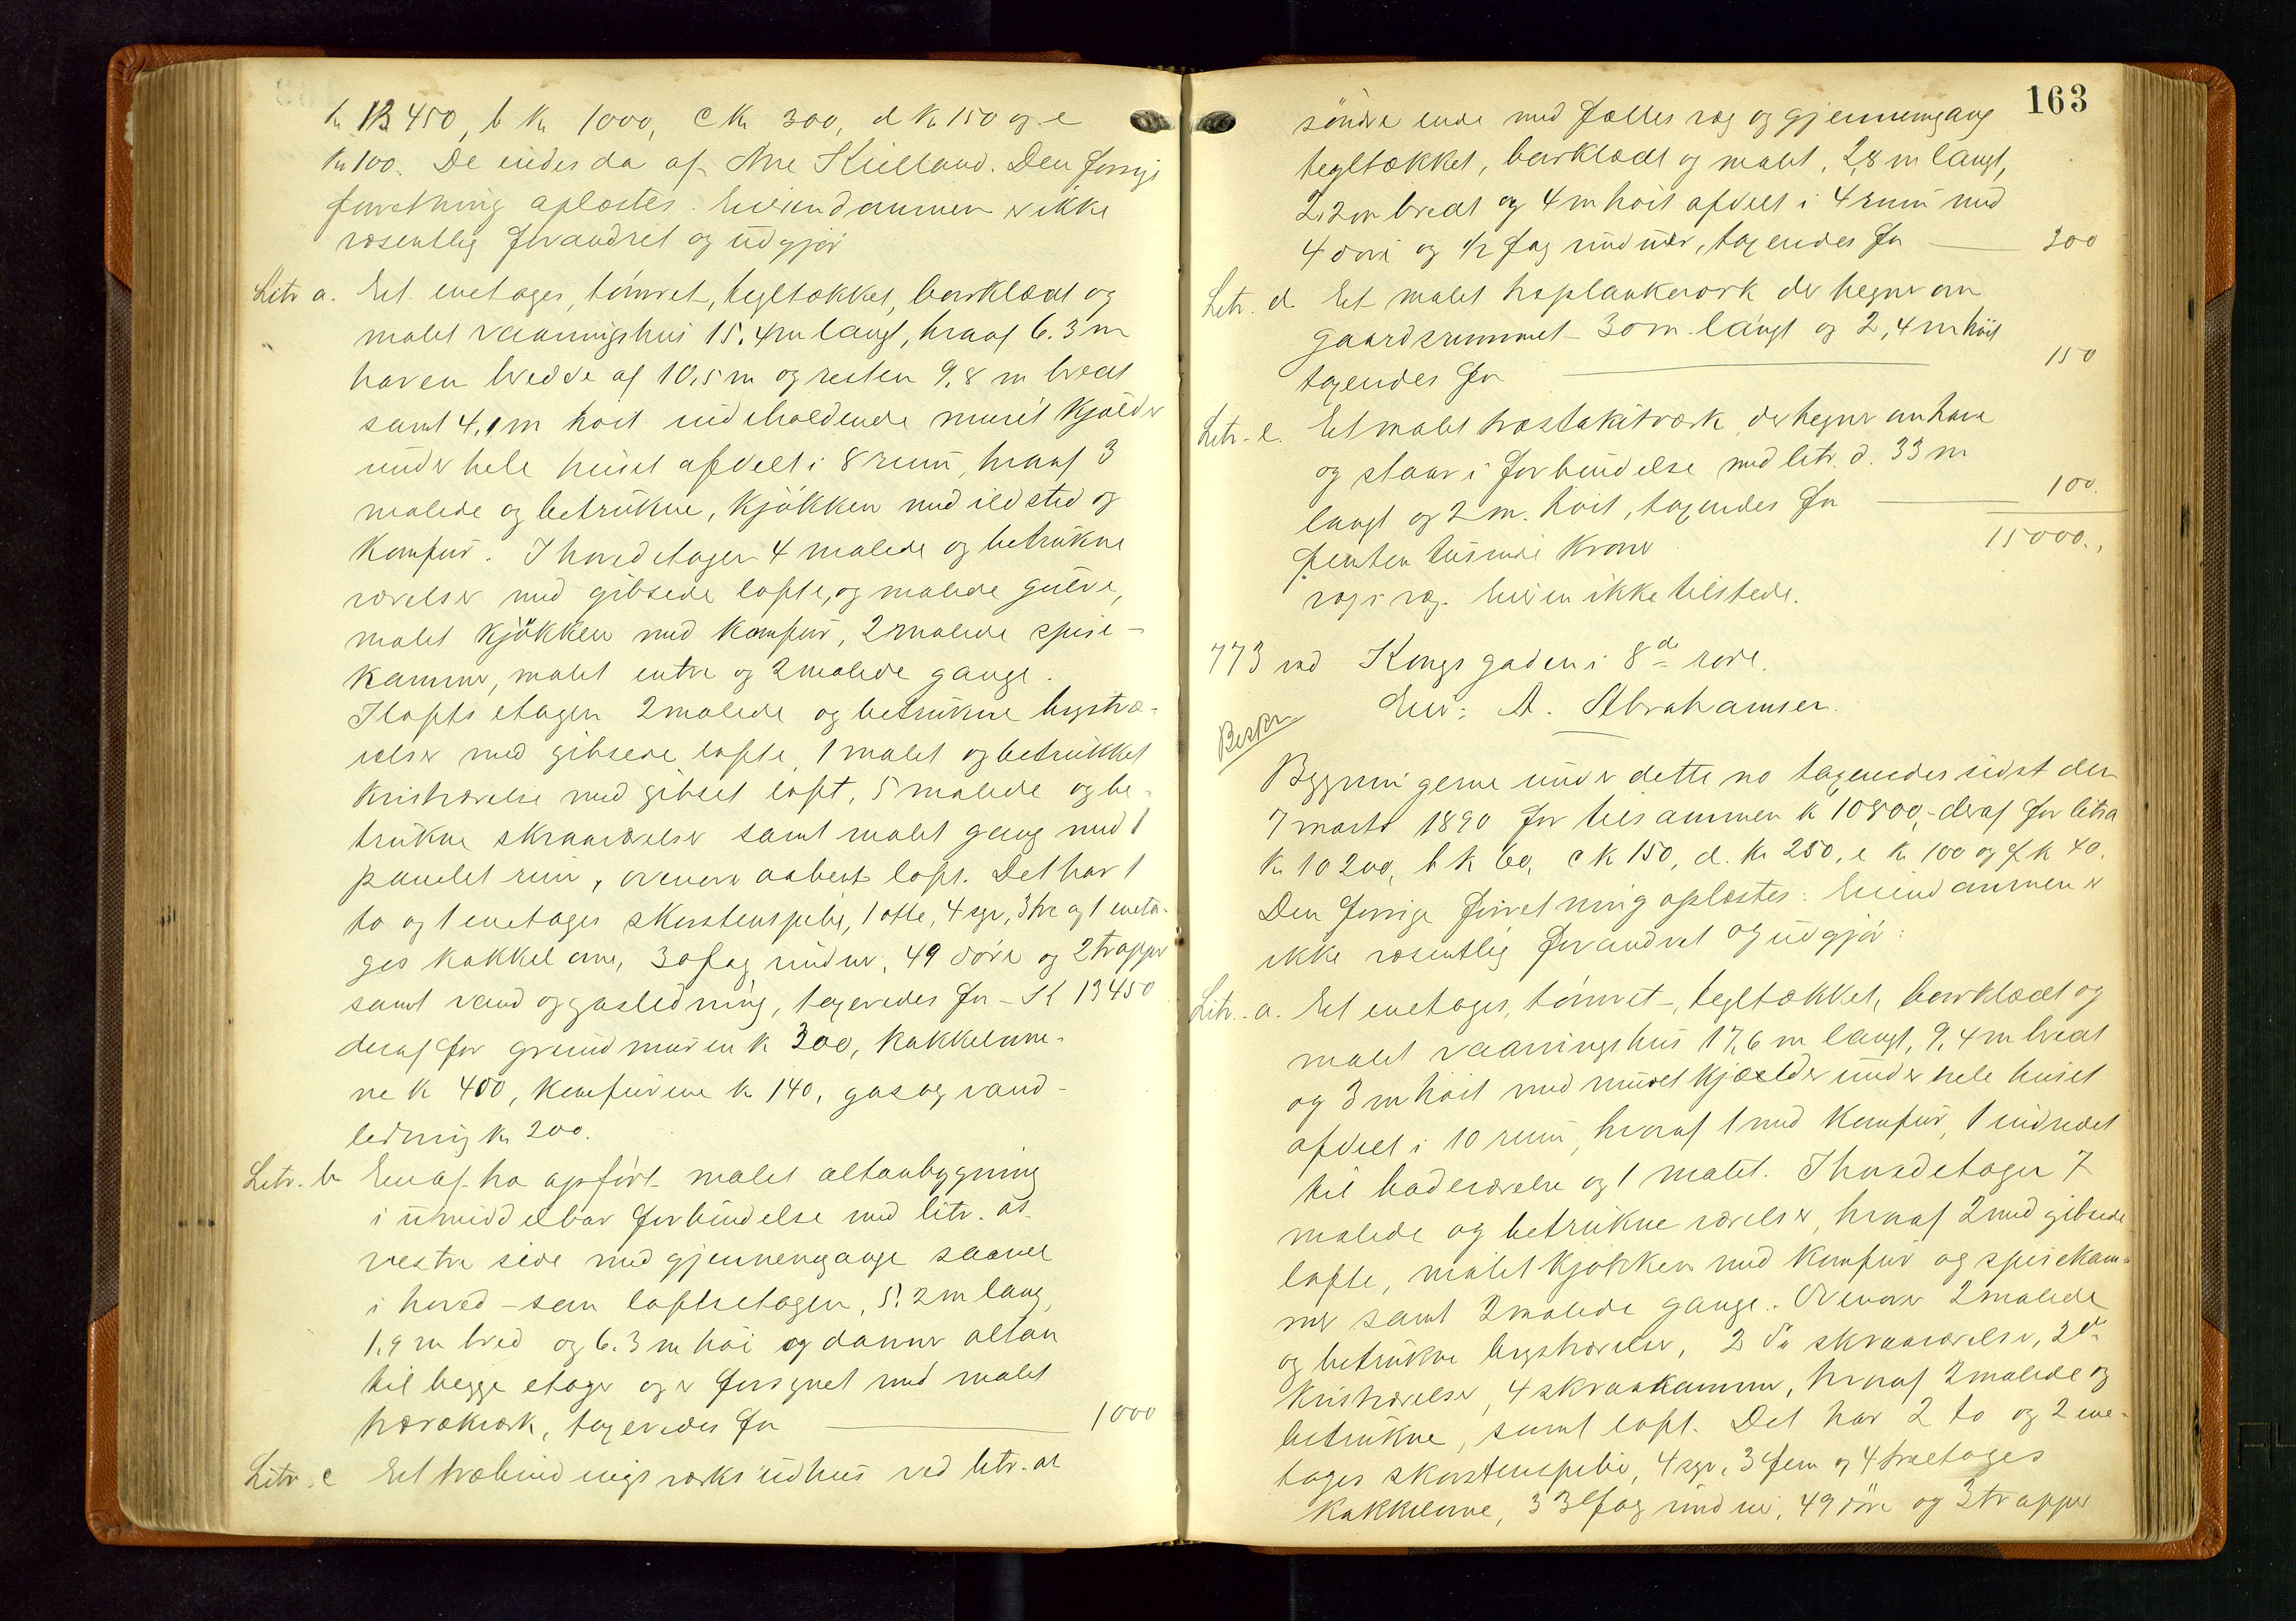 Kr 13450, b Kr 1000, c Kr 300, d Kr 150 og e
Kr 100. De eiedes da af Kielland. Den forrige
forretning oplæstes. Eiendommen er ikke
væsentlig forandret og udgjør
Litr a. Et enetages, tømret, tegltækket, bordklædt og
malet vaaningshus 15.4m langt, hvoraf 6.3 m
har en bredde af 10,5 m og resten 9,8 m bredt
samt 4,1m høit indeholdende muret kjælder
under hele huset afdelt i 8 rum, hvoraf 3
malede og betrukne, kjøkken med ildsted og
komfur. I hovedetagen 4 malede og betrukne
værelser med gibsede lofte, og malede gulve,
malet kjøkken med komfur, 2 malede spise-
kammer, malet entre og 2 malede gange.
I loftsetagen 2 malede og betrukne kvistvæ-
relser med gibsede lofte, 1 malet og betrukket
kvistværelse med gibset loft, 5 malede og be-
trukne skraaværelser samt malet gang med 1
panelet rum, ovenover aabent loft. Det har 1
to og 1 enetages skorstenspibe, 1 otte, 4 syv, 3 tre og 1 eneta-
ges kakkelovne, 30 fag vinduer, 49 døre og 2 trapper
samt vand og gasledning, taxeredes for - K 13450
deraf for grundmuren k 300, kakkelovne-
ne k 400, komfurene k 140, gas og vand-
ledning k 200.
Litr. b En af træ opført malet altanbygning
i umiddelbar forbindelse med litr. as
vestre side med gjennemgange saavel
i hoved- som loftsetagen, 5.2m lang,
1.9 m bred og 6.3 m høi og danner altan
til begge etager og er forsynet med malet
trærækværk, taxeredes for 1000
Litr. c Et træbindingsværks udhus ved litr. as
163
søndre ende med fælles væg og gjennemgang
tegltækket, bordklædt og malet, 2,8 m langt,
2,2m bredt og 4 m høit afdelt i 4 rum med
4 døre og 1/2 fag vinduer, taxeredes for 300
Litr. d Et malet træplankeværk der hegner om
gaardsrummet 30 m. langt og 2,4 m høit
taxeredes for 150
Litr. e. Et malet træstakitværk, der hegner om have
og staar i forbindelse med litr. d. 33 m
langt og 2 m. høit, taxeredes for 100.
femten tusinde Kroner 15000.,
Eieren ikke tilstede.
773 ved Kongsgaden i 8de rode.
Eier: A. Abrahamsen.
Beskr
Bygningerne under dette no taxeredes sidst den
7 marts 1890 for tilsammen k 10800,- deraf for litr a
Kr 10200, b k 60, c k 150, d. kr 250, e kr 100 og f k 40.
Den forrige forretning oplæstes: Eiendommen er
ikke væsentlig forandret og udgjør:
Litr. a. Et enetages, tømret, tegltækket, bordklædt og
malet vaaningshus 17,6 m langt, 9,4 m bredt
og 3 m høit med muret kjælder under hele huset
afdelt i 10 rum, hvoraf 1 med komfur, 1 indredet
til badeværelse og 1 malet. I hovedetagen 7
malede og betrukne værelser, hvoraf 2 med gibsede
lofte, malet kjøkken med komfur og spisekam-
mer samt 2 malede gange. Ovenover 2 malede
og betrukne kvistværelser, 2 do skraaværelser, 2 do
kvistværelser, 4 skraakammer, hvoraf 2 malede og
betrukne, samt loft. Det har 2 to og 2 ene-
tages skorstenspibe, 4 syv, 3 fem og 4 treetages
kakkelovne, 33 fag vinduer, 49 døre og 3 trapper